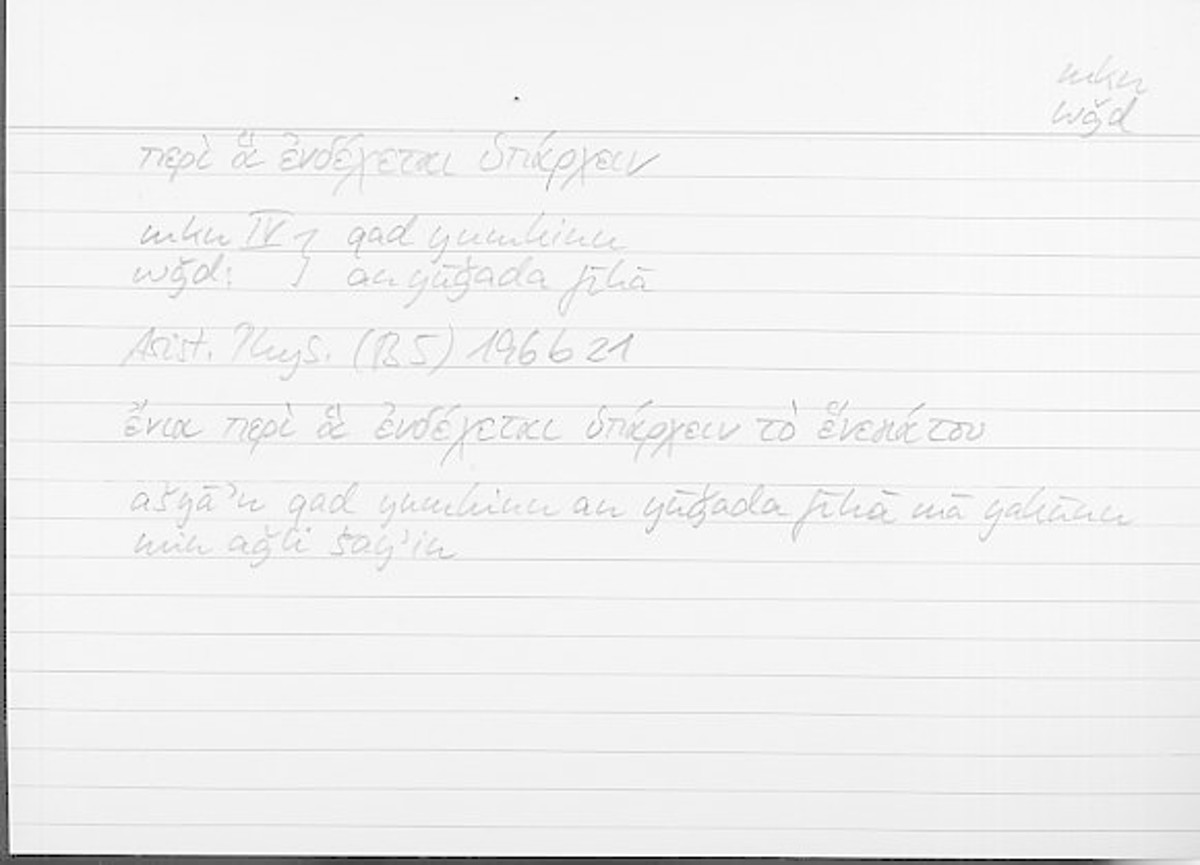 mkn
wǧd
περὶ ἃ ἐνδέχεται ὑπάρχειν
mkn IV } qad yumkinu
wǧd: } an yūǧada fīhā
Arist. Phys. (B5) 196b21
ἔνια περὶ ἃ ἐνδέχεται ὑπάρχειν τὸ ἕνεκά του
ašyāʾu qad yumkinu an yūǧada fīhā mā yakūnu
min aǧli šayʾin